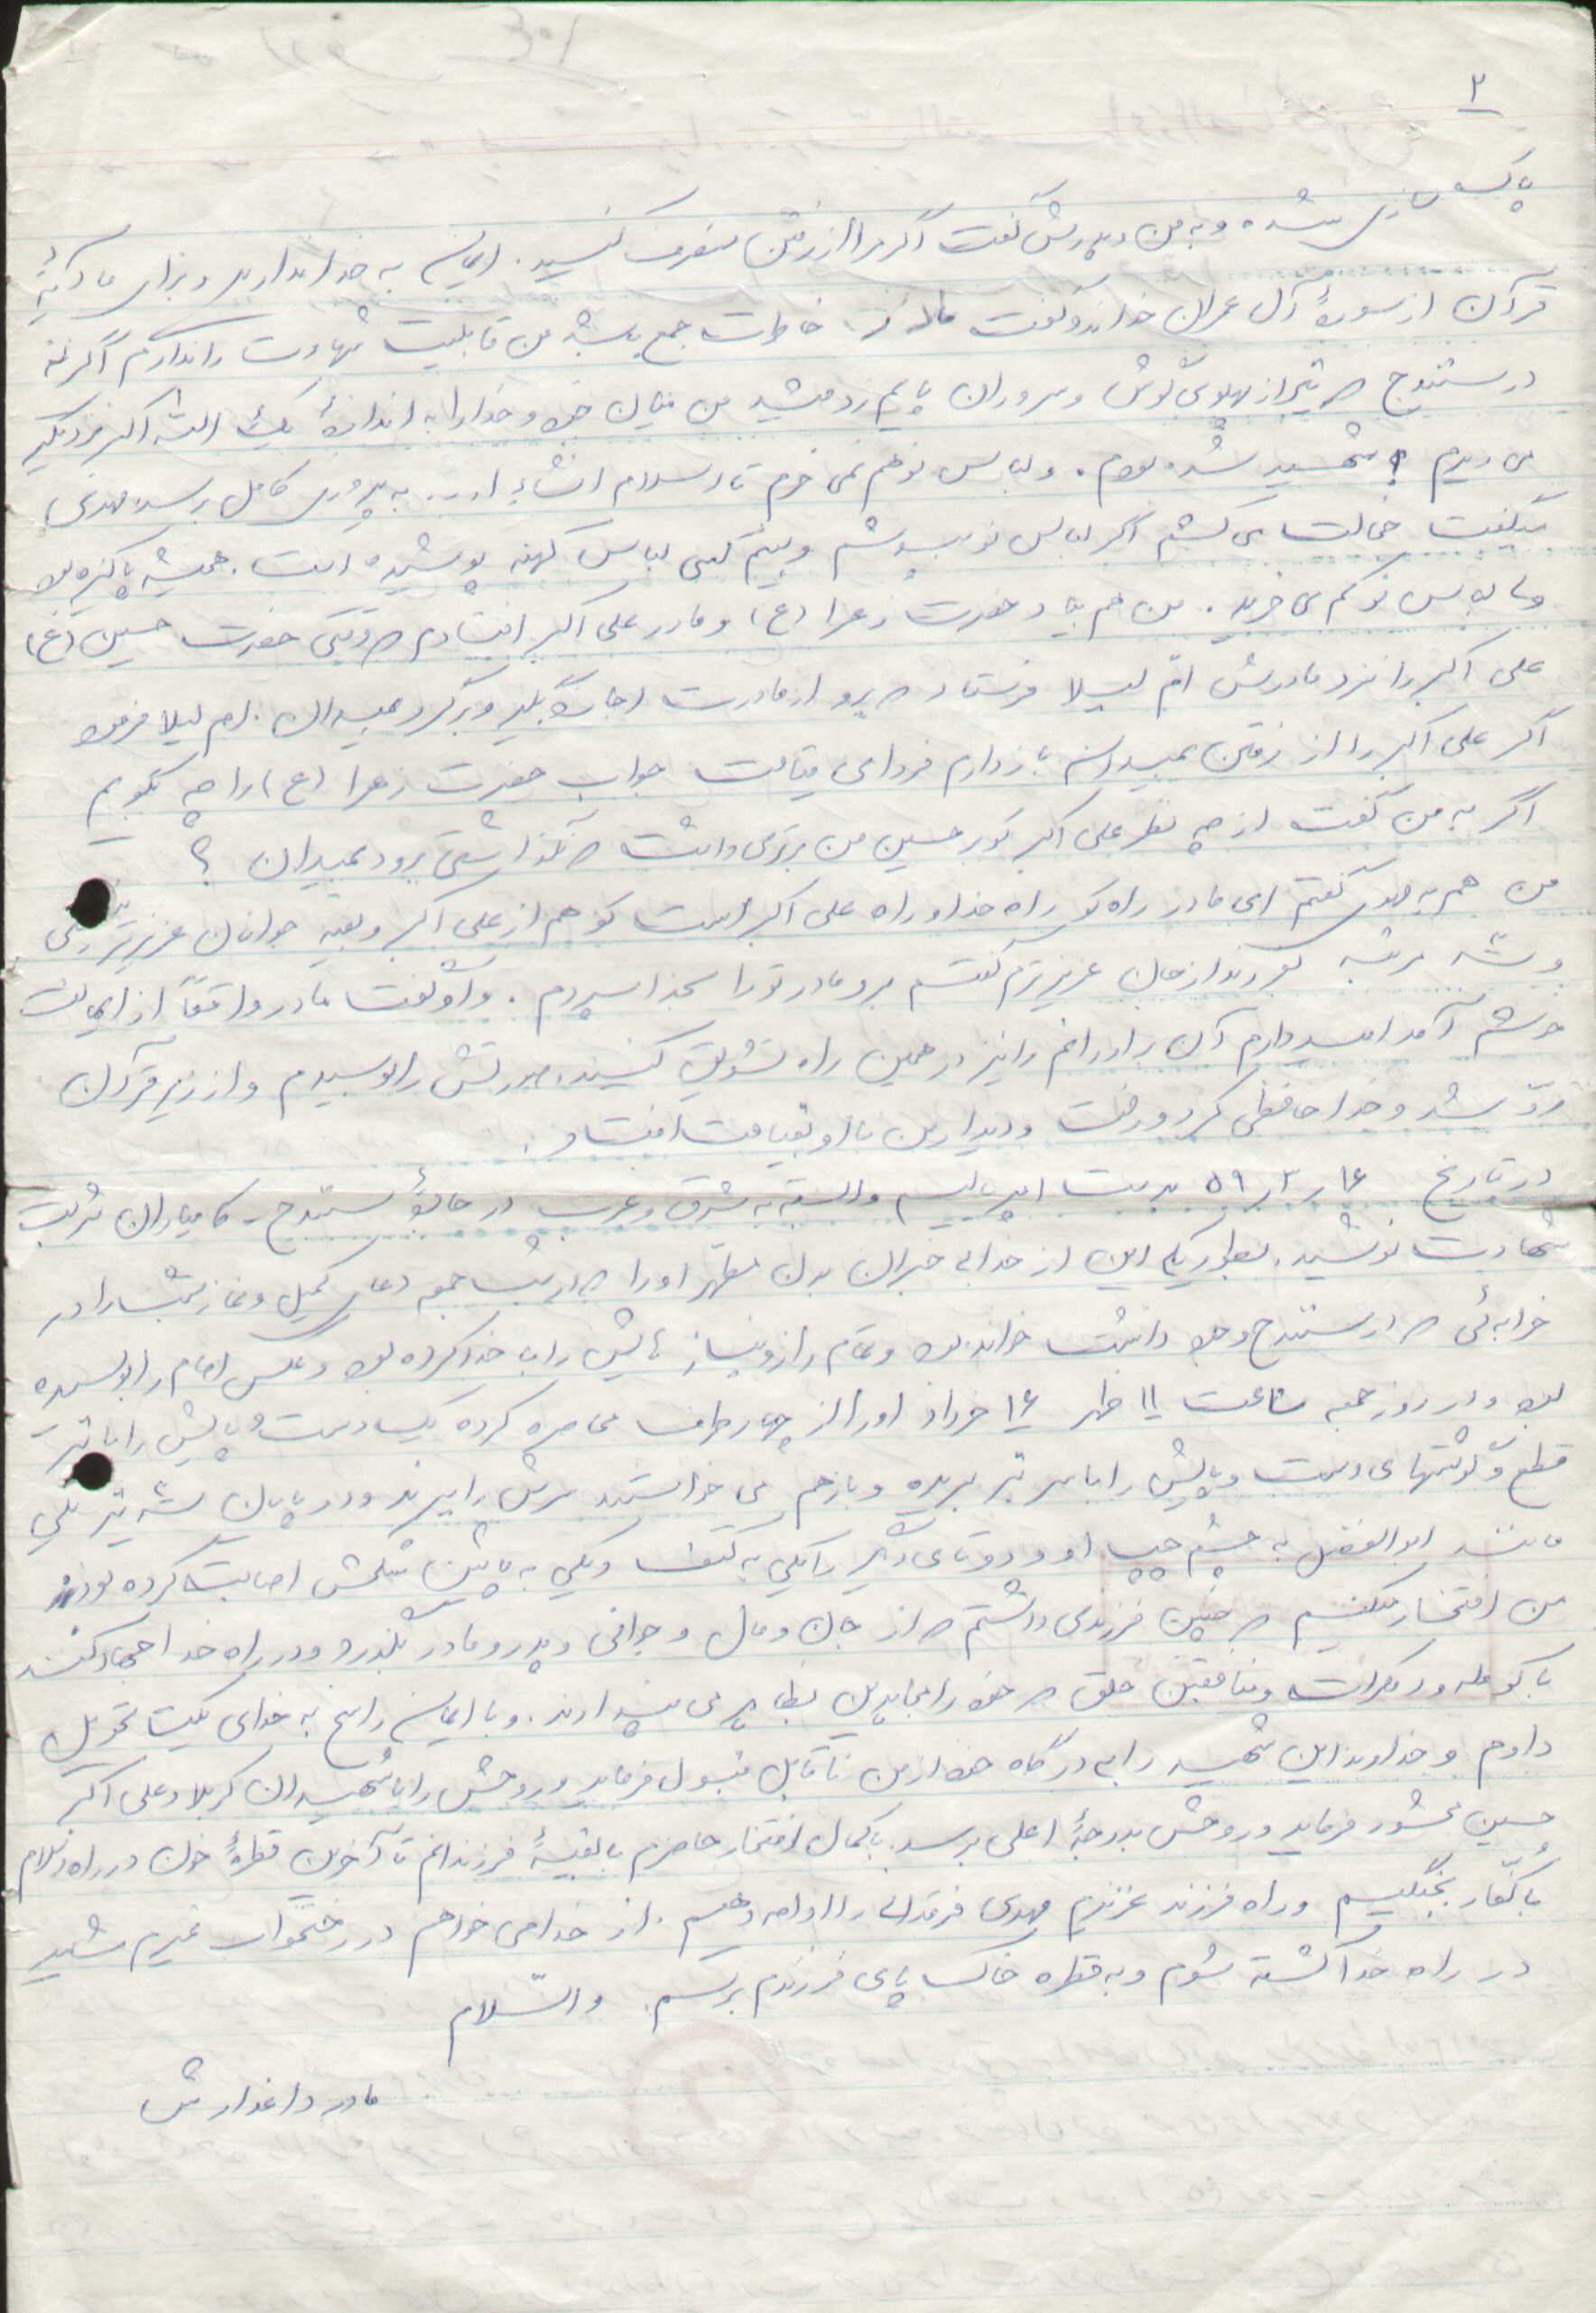 ۲
پاکسازی شده و به من و پدرش گفت اگر مرا از رفتن منصرف کنید. ایمان به خدا ندارید و برای ما دو آیهٔ
قرآن از سورهٔ آل عمران خواند و گفت مادر خاطرت جمع باشد من قابلیت شهادت را ندارم اگر نه
در سنندج که تیر از پهلوی گوش و سر و ران پایم رد میشد من خود و خدا را به اندازهٔ یک الله اکبر نزدیک
می دیدم شهید شده بودم. و لباس نو هم نمی خرم تا اسلام انشاء الله به پیروزی کامل برسد مهدی
میگفت خجالت می کشم اگر لباس نو بپوشم و ببینم کسی لباس کهنه پوشیده است. همیشه پاکیزه بود
ولی لباس نو کم می خرید. من هم بیاد حضرت زهرا (ع) و مادر علی اکبر افتادم که وقتی حضرت حسین (ع)
علی اکبر را نزد مادرش ام لیلا فرستاد که برو از مادرت اجازه بگیر و برگرد بمیدان. ام لیلا فرمود
اگر علی اکبر را از رفتن بمیدان باز دارم فردای قیامت جواب حضرت زهرا (ع) را چه بگویم
اگر به من گفت از چه نظر علی اکبر تو بر حسین من برتری داشت که نگذاشتی برود بمیدان ؟
من هم به مهدی گفتم ای مادر راه تو راه خدا و راه علی اکبر است تو هم از علی اکبر و بقیه جوانان عزیزتر نیستی
و سه مرتبه گفتم برو مادر تو را بخدا سپردم. و او گفت مادر واقعاً از ایمانت
خوشم آمد امیدوارم آن برادرانم را نیز در همین راه تشویق کنید. صورتش را بوسیدم و از زیر قرآن
ردّ شد و خداحافظی کرد و رفت و دیدار من با او بقیامت افتاد.
در تاریخ ۵۹/۳/۱۶ بدست امپریالیسم وابسته به شرق و غرب در جادهٔ سنندج - کامیاران شربت
شهادت نوشید. بطوریکه این از خدا بی خبران بدن مطهر او را که در شب جمعه دعای کمیل و نماز شبش را در
خرابه ئی که در سنندج وجود داشت خوانده بود و تمام راز و نیازهایش را با خدا کرده بود و عکس امام را بوسیده
بود و در روز جمعه ساعت ۱۱ ظهر ۱۶ خرداد او را از چهار طرف محاصره کرده یک دست و پایش را با تیر
قطع و گوشتهای دست و پایش را با سر تیر بریده و باز هم می خواستند سرش را ببرند و در پایان سه تیر یکی
مانند ابوالفضل به چشم چپ او و دوتای دیگر را یکی به کتف و یکی به پائین شکمش اصابت کرده بودند
من افتخار میکنم که چنین فرزندی داشتم که از جان و مال و جوانی و پدر و مادر بگذرد و در راه خدا جهاد کند
با کومله و دمکرات و منافقین خلق که خود را مجاهدین بظاهر می پندارند. و با ایمان راسخ به خدای یکتا تحویل
دادم و خداوند این شهید را به درگاه خود از من ناقابل قبول فرماید و روحش را با شهیدان کربلا و علی اکبر
حسین محشور فرماید و روحش بدرجهٔ اعلی برسد. با کمال افتخار حاضرم با بقیهٔ فرزندانم تا آخرین قطرهٔ خون در راه اسلام
با کفّار بجنگیم و راه فرزند عزیزم مهدی را ادامه دهیم. از خدا می خواهم در رختخواب نمیرم شاید
در راه خدا کشته شوم و به قطره خاک پای فرزندم برسم. والسّلام
مادر داغدارش